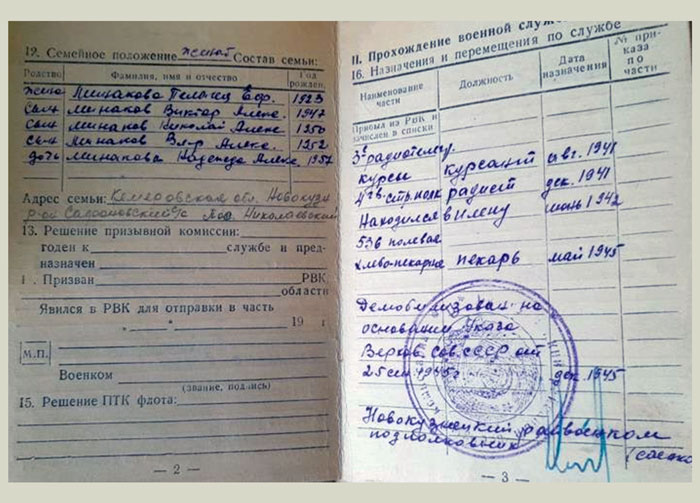 12. Семейное положение женат Состав семьи:
Родство Фамилия, имя и отчество Год рожден.
жена Минакова Еф. 1923
сын Минаков Виктор Алекс. 1947
сын Минаков Николай Алекс 1950
сын Минаков Вл-р Алекс. 1952
дочь Минакова Надежда Алекс. 1957
Адрес семьи: Кемеровская обл. Новокузн
р-он с/с пос. Николаевский
13. Решение призывной комиссии:
годен к службе и пред-
назначен
Призван РВК
области
Явился в РВК для отправки в часть
" " 19 г
М.П.
Военком
(звание, подпись)
15. Решение ПТК флота:
— 2 —
II. Прохождение военной служ
16. Назначения и перемещения по службе
Наименование части Должность Дата назначения № приказа по части
Прибыл из РВК и
зачислен в списки
радиотелегр.
курсы курсант авг. 1941
стр. полк радист дек. 1941
Находился в плену июнь 1942
536 полевая
хлебо-пекарня пекарь май 1945
Демобилизован на
основании Указа
Верхов. Сов. СССР от
25 сен 1945г дек. 1945
Новокузнецкий райвоенком
подполковник
— 3 —